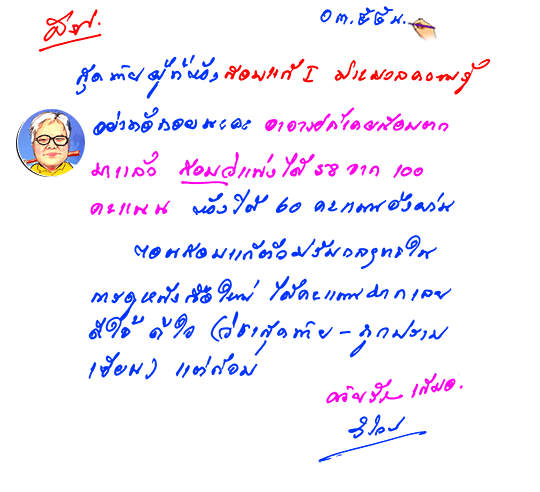 สุดท้ายผู้ที่ต้องสอบแก้ I ประมวลความรู้
อย่าท้อถอยนะคะ อาจารย์ก็เคยสอบตก
มาแล้ว สอบวิแพ่งได้ 58 จาก 100
คะแนน ต้องได้ 60 คะแนนจึงผ่าน
ตอนสอบแก้ตัวปรับกลยุทธใน
การดูหนังสือใหม่ ได้คะแนนมากเลย
ดีใจ ดีใจ (วิชาสุดท้าย -
) แต่สอบ
ด้วยรัก เสมอ.